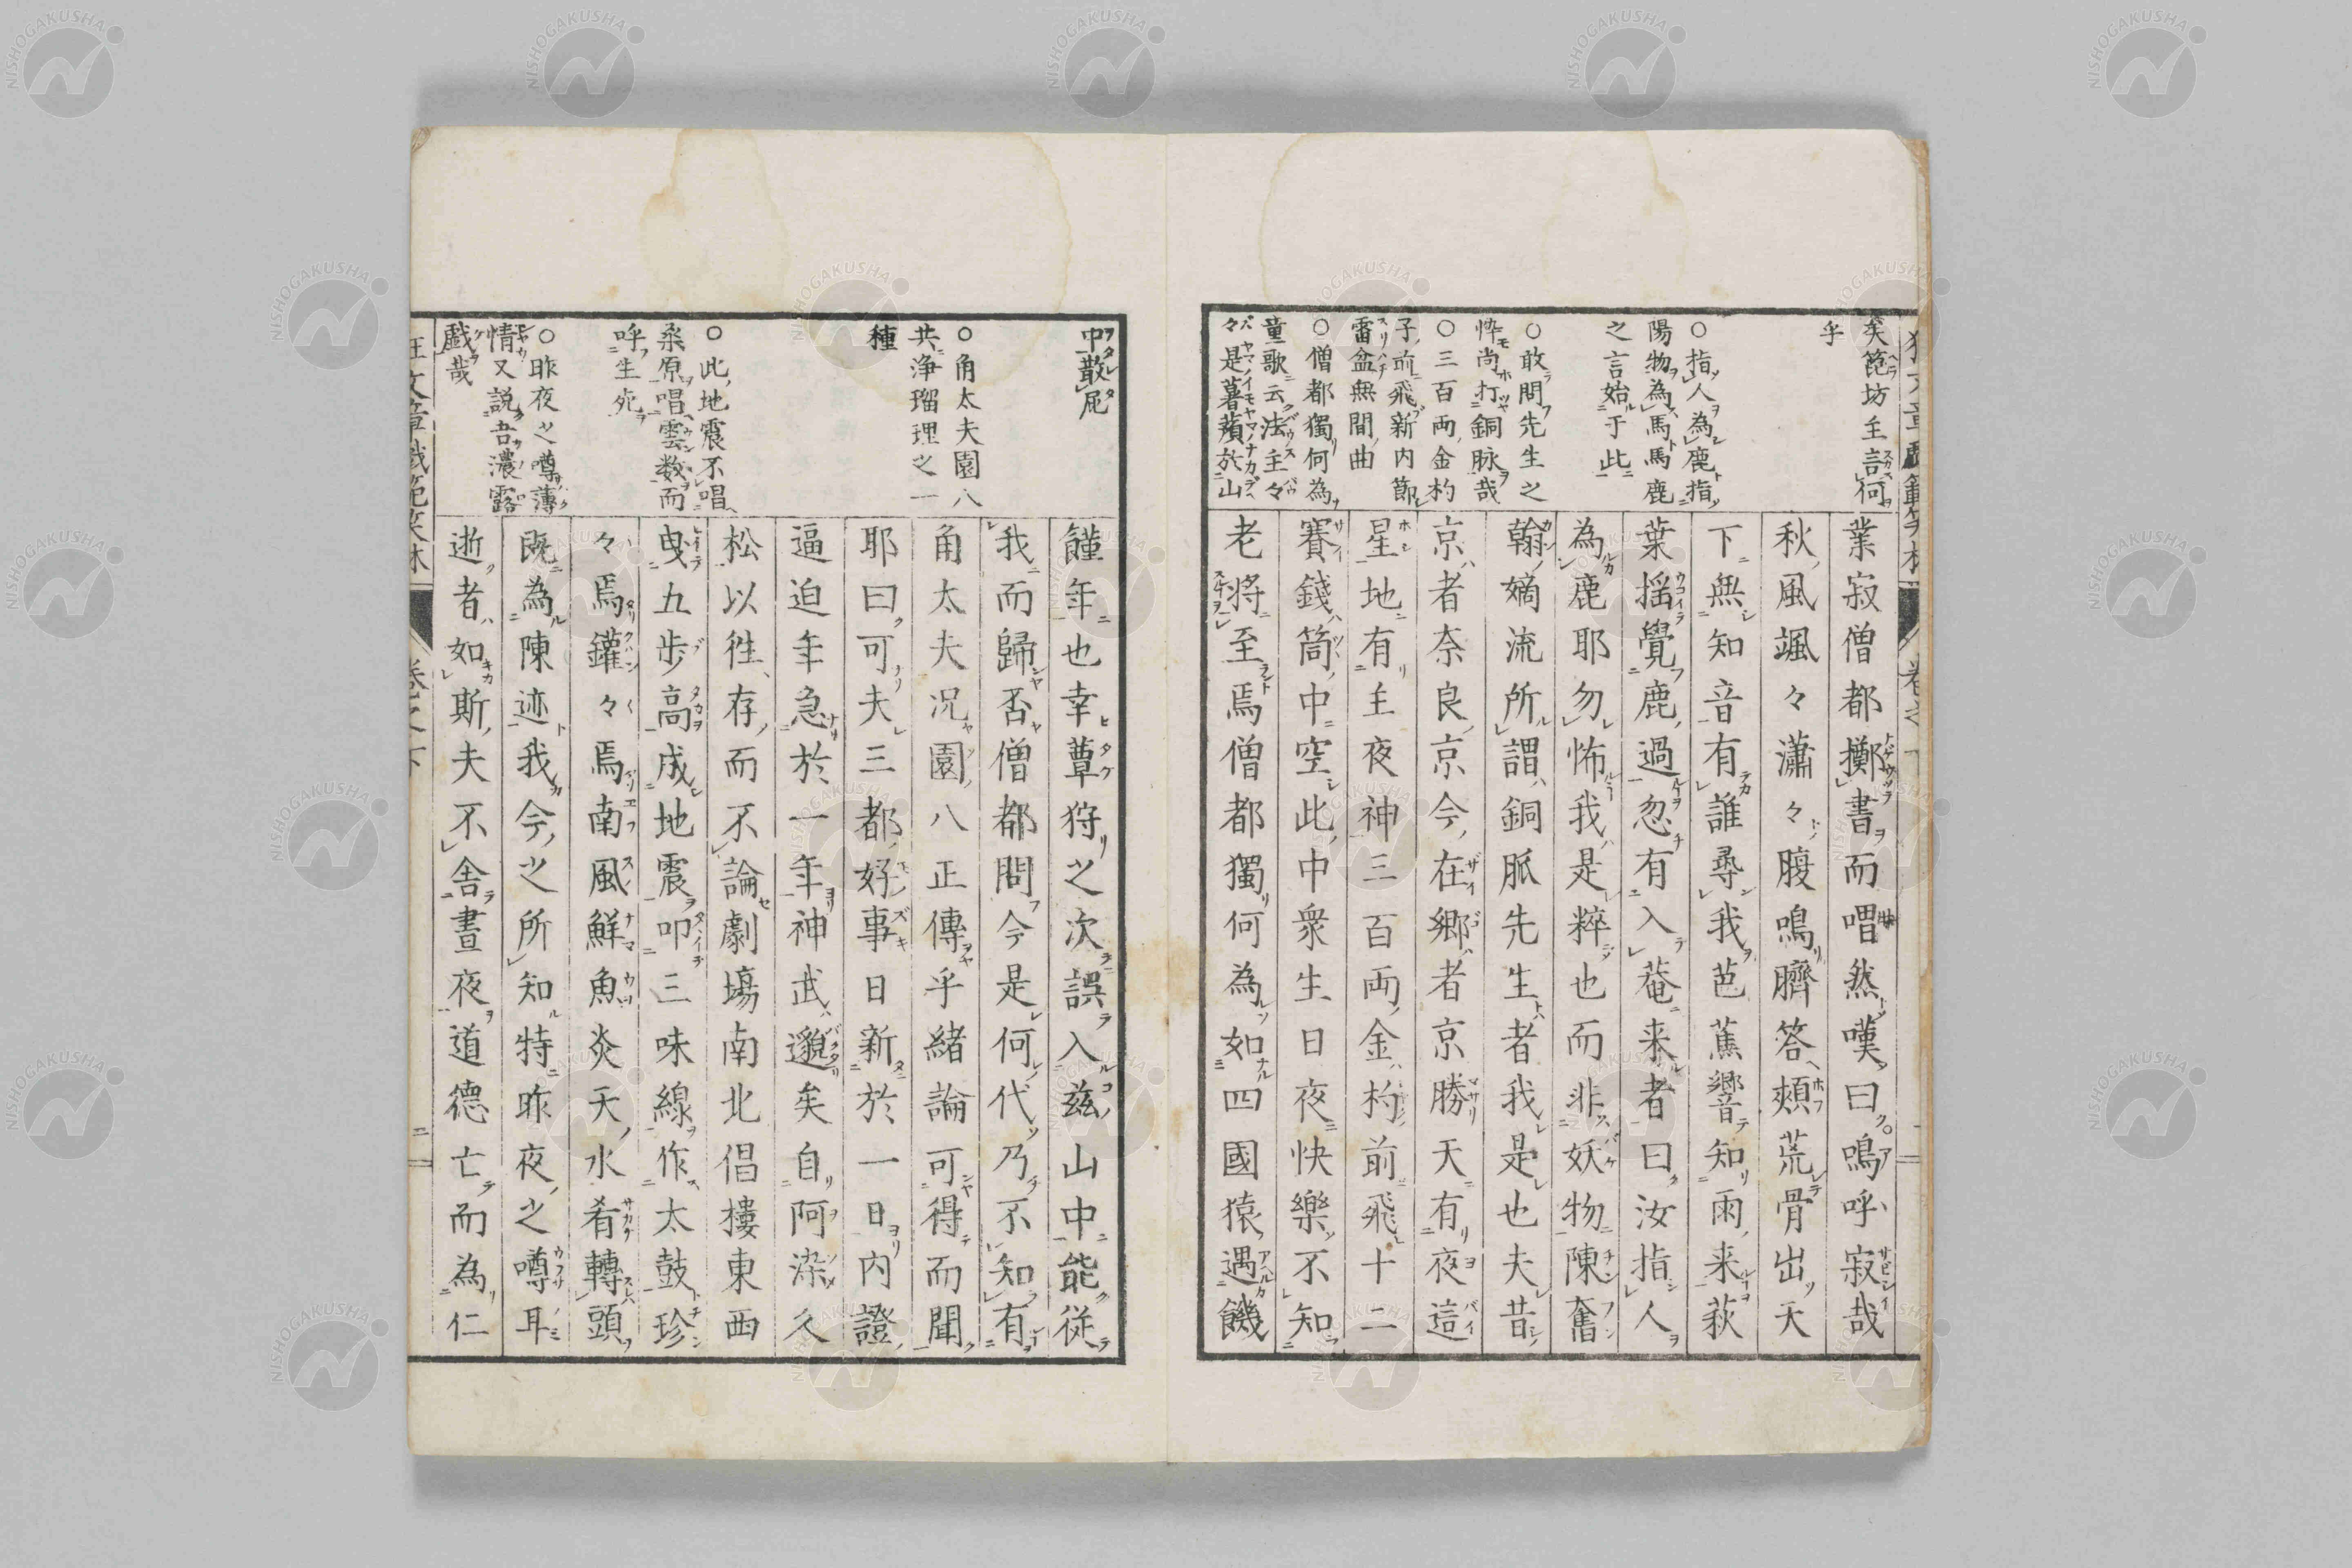 矣箆坊主言何
乎
○指人為鹿指
陽物為馬馬鹿
之言始于此
○敢問先生之
悴尚打銅脉哉
○三百両金杓
子前飛新内節
雷盆無間曲
○僧都獨何為
童歌云法主々
々是暮蘋於山
業寂僧都擲書而喟然嘆曰嗚呼寂哉
秋風颯々瀟々腹鳴臍答頰荒骨出天
下無知音有誰尋我芭蕉響知雨来荻
葉揺覺鹿過忽有入菴来者曰汝指人
為鹿耶勿怖我是粹也而非妖物陳奮
翰嫡流所謂銅脈先生者我是也夫昔
京者奈良京今在郷者京勝天有夜這
星地有主夜神三百両金杓前飛十二
賽錢筒中空此中衆生日夜快樂不知
老將至焉僧都獨何為如四國猿遇饑
中散㞍
○角太夫園八
共浄瑠理之一
種
○此地震不唱
桒原唱雲数而
呼生死
○昨夜之噂薄
情又説吾濃露
戲哉
饉年也幸蕈狩之次誤入兹山中能従
我而歸否僧都問今是何代乃不知有
角太夫况園八正傳乎緒論可得而聞
耶曰可夫三都好事日新於一日内證
逼迫年急於一年神武邈矣自阿染久
松以徃存而不論劇場南北倡樓東西
曳五歩高成地震叩三味線作太鼓珍
々焉鑵々焉南風鮮魚炎天水肴轉頭
既為陳迹我今之所知特昨夜之噂耳
逝者如斯夫不舎晝夜道德亡而為仁